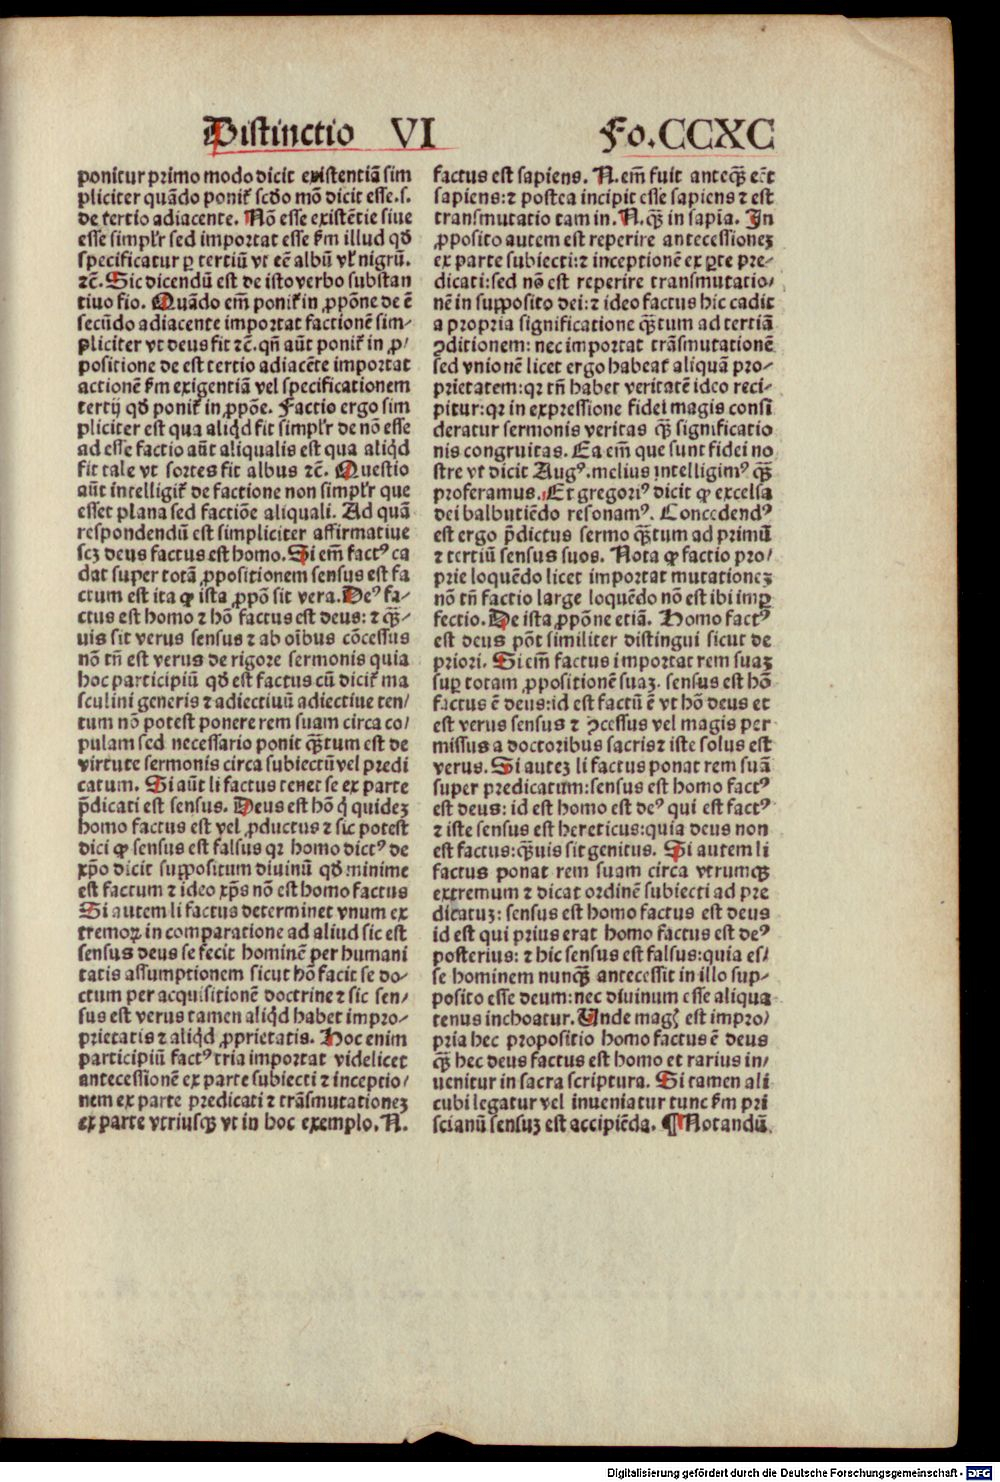 Distinctio VI Fo.CCXC
ponitur primo modo dicit existentiã sim
pliciter quãdo poniť scďo mõ dicit esse.s.
de tertio adiacente. Nõ esse existẽtie siue
esse simplr̃ sed importat esse ẜm illud qď
specificatur ꝑ tertiũ vt eẽ albũ vl̕ nigrũ.
ꝛc̃. Sic dicendũ est de isto verbo substan
tiuo fio. Quãdo em̃ poniť in ꝓpõne de ẽ
secũdo adiacente importat factionẽ sim⸗
pliciter vt deus fit ꝛc̃. qñ aũt poniť in ꝓ/
positione de est tertio adiacẽte importat
actionẽ ẜm exigentiã vel specificationem
tertij qď poniť in ꝓpõe. Factio ergo sim
pliciter est qua aliqd̕ fit simplr̃ de nõ esse
ad esse factio aũt aliqualis est qua aliqd̕
fit tale vt sortes fit albus ꝛc̃. Questio
aũt intelligiť de factione non simplr̃ que
esset plana sed factiõe aliquali. Ad quã
respondendũ est simpliciter affirmatiue
scꝫ deus factus est homo. Si em̃ factꝰ ca
dat super totã ꝓpositionem sensus est fa
ctum est ita ꝙ ista ꝓpõ sit vera. Deꝰ fa⸗
ctus est homo ⁊ hõ factus est deus: ⁊ qꝫ̃⸗
uis sit verus sensus ⁊ ab oĩbus cõcessus
nõ tñ est verus de rigore sermonis quia
hoc participiũ qď est factus cũ diciť ma
sculini generis ⁊ adiectiuũ adiectiue ten/
tum nõ potest ponere rem suam circa co/
pulam sed necessario ponit qꝫ̃tum est de
virtute sermonis circa subiectũ vel predi
catum. Si aũt li factus tenet se ex parte
p̃dicati est sensus. Deus est hõ q̇ quidez
homo factus est vel ꝓductus ⁊ sic potest
dici ꝙ sensus est falsus qꝛ homo dictꝰ de
xp̃o dicit suppositum diuinũ qď minime
est factum ⁊ ideo xp̃s nõ est homo factus
Si autem li factus determinet vnum ex
tremoꝝ in comparatione ad aliud sic est
sensus deus se fecit hominẽ per humani
tatis assumptionem sicut hõ facit se do⸗
ctum per acquisitionẽ doctrine ⁊ sic sen/
sus est verus tamen aliqd̕ habet impro⸗
prietatis ⁊ aliqd̕ ꝓprietatis. Hoc enim
participiũ factꝰ tria importat videlicet
antecessionẽ ex parte subiecti ⁊ inceptio/
nem ex parte predicati ⁊ trãsmutationez
ex parte vtriusqꝫ vt in hoc exemplo. N.
factus est sapiens. N. em̃ fuit anteqꝫ̃ eẽt
sapiens: ⁊ postea incipit esse sapiens ⁊ est
transmutatio tam in. N. qꝫ̃ in sapia. In
ꝓposito autem est reperire antecessionez
ex parte subiecti: ⁊ inceptionẽ ex ꝑte pre⸗
dicati: sed nõ est reperire transmutatio/
nẽ in supposito dei: ⁊ ideo factus hic cadit
a propria significatione qꝫ̃tum ad tertiã
ꝯditionem: nec importat trãsmutationẽ
sed vnionẽ licet ergo habeať aliquã pro⸗
prietatem: qꝛ tñ habet veritatẽ ideo reci⸗
pitur: qꝛ in expressione fidei magis consi
deratur sermonis veritas qꝫ̃ significatio
nis congruitas. Ea em̃ que sunt fidei no
stre vt dicit Augꝰ. melius intelligimꝰ qꝫ̃
proferamus. Et gregoriꝰ dicit ꝙ excelsa
dei balbutiẽdo resonamꝰ. Concedendꝰ
est ergo p̃dictus sermo qꝫ̃tum ad primũ
⁊ tertiũ sensus suos. Nota ꝙ factio pro/
prie loquẽdo licet importat mutationez
nõ tñ factio large loquẽdo nõ est ibi imꝑ
fectio. De ista ꝓpõne etiã. Homo factꝰ
est deus põt similiter distingui sicut de
priori. Si em̃ factus importat rem suaz
suꝑ totam ꝓpositionẽ suaz. sensus est hõ
factus ẽ deus: id est factũ ẽ vt hõ deus et
est verus sensus ⁊ ꝯcessus vel magis per
missus a doctoribus sacris: ⁊ iste solus est
verus. Si autez li factus ponat rem suã
super predicatum: sensus est homo factꝰ
est deus: id est homo est deꝰ qui est factꝰ
⁊ iste sensus est hereticus: quia deus non
est factus: qꝫ̃uis sit genitus. Si autem li
factus ponat rem suam circa vtrumqꝫ
extremum ⁊ dicat ordinẽ subiecti ad pre
dicatuz: sensus est homo factus est deus
id est qui prius erat homo factus est deꝰ
posterius: ⁊ hic sensus est falsus: quia es/
se hominem nunqꝫ̃ antecessit in illo sup⸗
posito esse deum: nec diuinum esse aliqua
tenus inchoatur. Unde mag̃ est impro/
pria hec propositio homo factus ẽ deus
qꝫ̃ hec deus factus est homo et rarius in/
uenitur in sacra scriptura. Si tamen ali
cubi legatur vel inueniatur tunc ẜm pri
scianũ sensuꝫ est accipiẽda. ¶ Notandũ
Digitalisierung gefördert durch die Deutsche Forschungsgemeinschaft - DFG